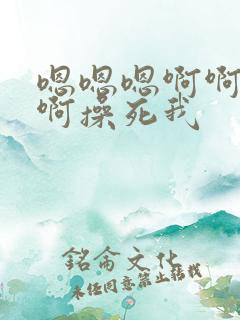 嗯嗯嗯啊啊
啊操死我
銘侖文化
未经同意禁止转载